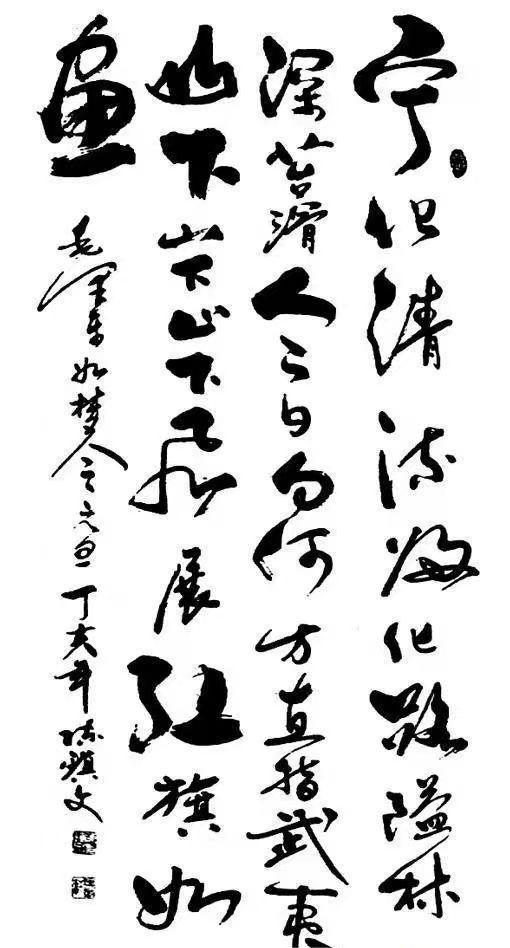 宁化清流归化路隘林
深苔滑今日向何方直指武夷
山下山下山下风展红旗如
画
毛泽东如梦令元旦丁亥年陈文